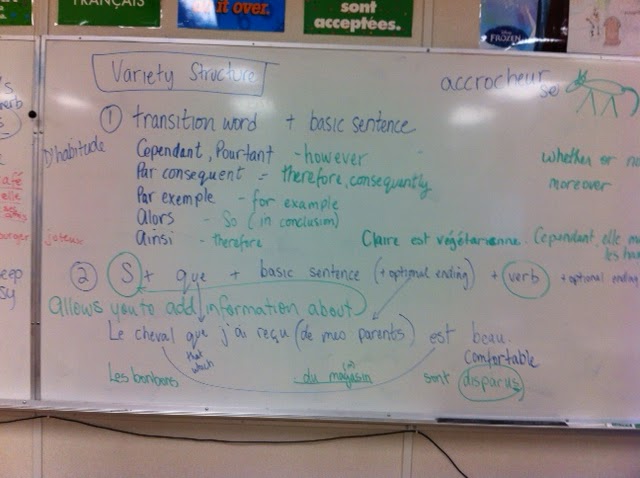 FRANÇAIS
it over.
sont
acceptées.
FROZEN
Variety Structure
accrocheur
se
① transition word + basic sentence
D'habitude
Cependant, Pourtant - however
whether or no
Par consequent = therefore, consequently
moreover
Par exemple - for example
Alors - So (in conclusion)
joteux
Ainsi - therefore
Claire est végétarienne. Cependant, elle m
les ham
② S + que + basic sentence (+ optional ending) + verb + optional ending
allows you to add information about
Le cheval que j'ai reçu (de mes parents) est beau.
that
which
comfortable
Les bonbons du magasin sont disparus